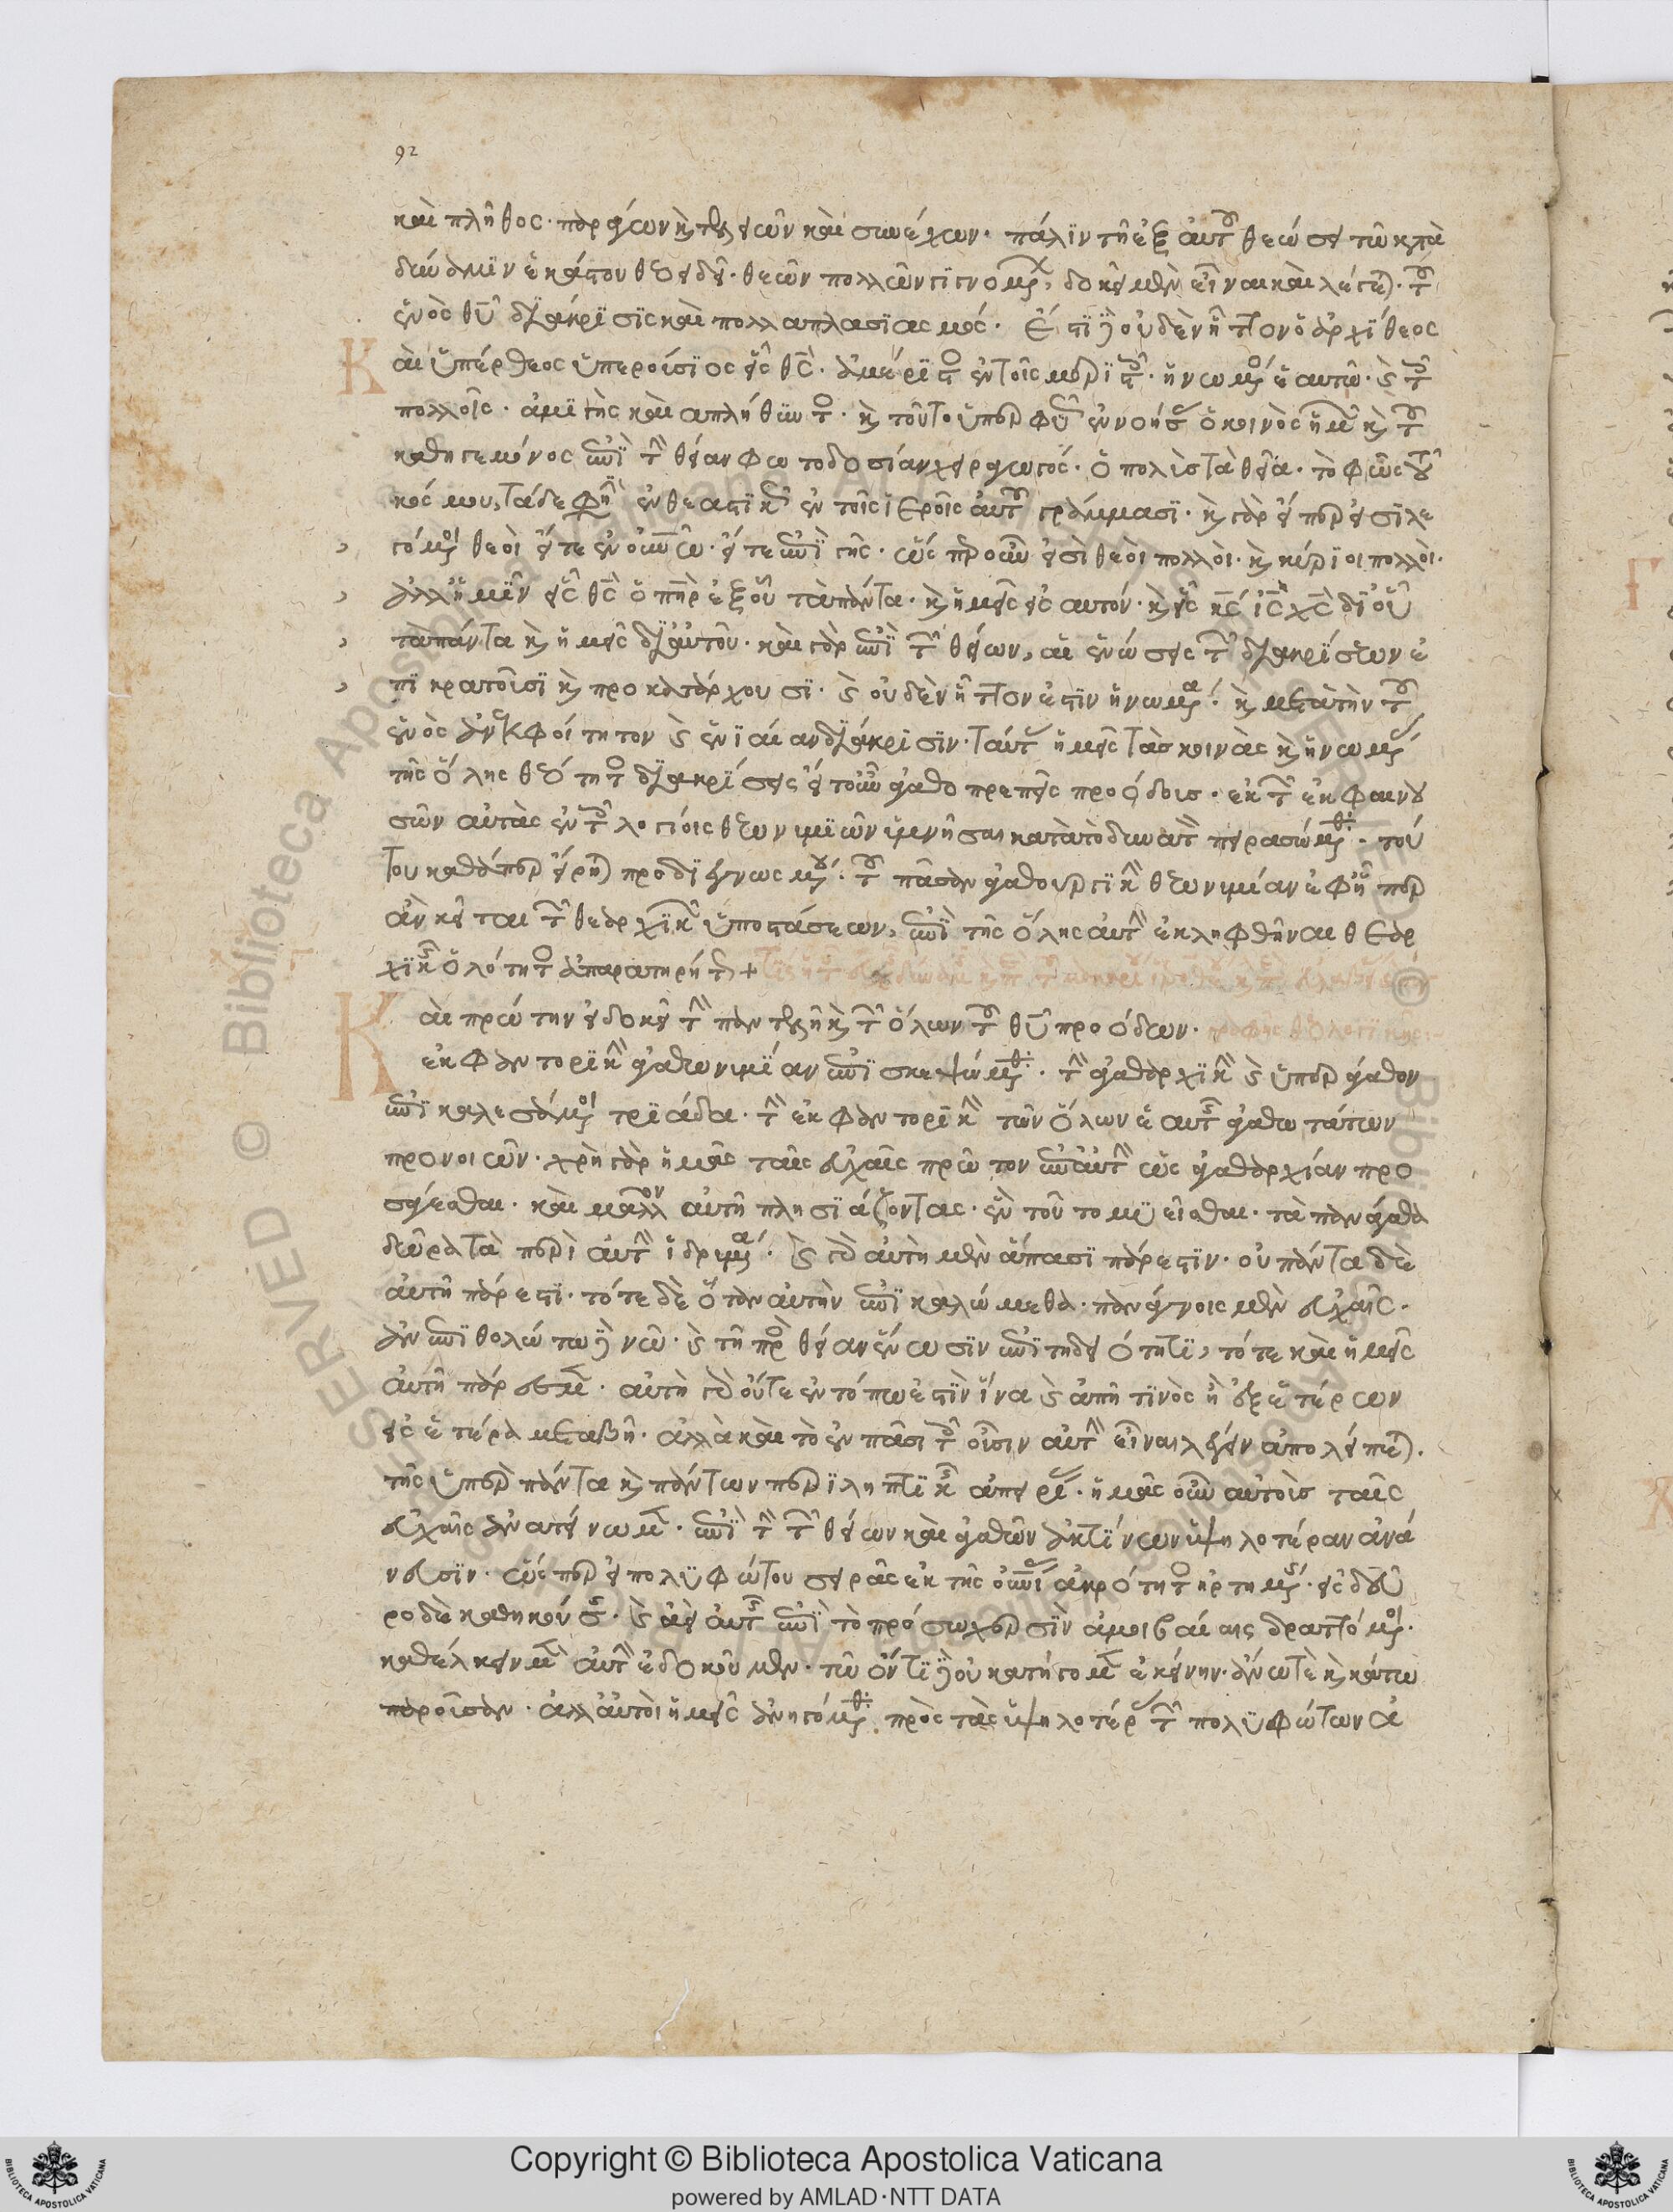 92
καὶ πλῆθος· παράγων καὶ τελειῶν καὶ συνέχων· πάλιν τῇ ἐξ αὐτοῦ θεώσει τῷ κατὰ
δύναμιν ἑκάστου θεοειδεῖ· θεῶν πολλῶν γιγνομένων, δοκεῖ μὲν εἶναι καὶ λέγεται· τοῦ
ἑνὸς θυ διάκρισις καὶ πολλαπλασιασμός· Ἔστι δὲ οὐδὲν ἧττον ὁ ἀρχίθεος
Κ
αὶ ὑπέρθεος ὑπερούσιος εἷς θς· ἀμέριστος ἐν τοῖς μεριστοῖς· ἡνωμένος ἑαυτῷ· καὶ τοῖς
πολλοῖς· ἀμιγὴς καὶ ἀπλήθυντος· καὶ τοῦτο ὑπερφυῶς ἐννοήσας ὁ κοινὸς ἡμῶν καὶ τοῦ
καθηγεμόνος ἐπὶ τὴν θείαν φωτοδοσίαν χειραγωγός· ὁ πολὺς τὰ θεῖα· τὸ φῶς τοῦ
κόσμου, τάδε φησὶν ἐνθεαστικῶς ἐν τοῖς ἱεροῖς αὐτοῦ γράμμασι· καὶ γὰρ εἴπερ εἰσὶ λε
γόμενοι θεοὶ εἴτε ἐν οὐνω· εἴτε ἐπὶ γῆς· ὥσπερ οὖν εἰσὶ θεοὶ πολλοὶ· καὶ κύριοι πολλοὶ·
ἀλλ' ἡμῖν εἷς θς ὁ πηρ ἐξ οὗ τὰ πάντα· καὶ ἡμεῖς εἰς αὐτόν· καὶ εἷς κς ις χς δι' οὗ
τὰ πάντα καὶ ἡμεῖς δι' αὐτοῦ· καὶ γὰρ ἐπὶ τῶν θείων, αἱ ἑνώσεις τῶν διακρίσεων ἐ
πικρατοῦσι καὶ προκατάρχουσι· καὶ οὐδὲν ἧττόν ἐστιν ἡνωμένα· καὶ μετὰ τὴν τοῦ
ἑνὸς ἀνεκφοίτητον καὶ ἑνιαίαν διάκρισιν· ταύτας ἡμεῖς τὰς κοινὰς καὶ ἡνωμένας
τῆς ὅλης θεότητος διακρίσεις εἴτουν ἀγαθοπρεπεῖς προόδους· ἐκ τῶν ἐκφαινου
σῶν αὐτὰς ἐν τοῖς λογίοις θεωνυμιῶν ὑμνῆσαι κατὰ τὸ δυνατὸν πειρασώμεθα· τού
του καθάπερ εἴρηται προδιεγνωσμένου· τοῦ πᾶσαν ἀγαθουργικὴν θεωνυμίαν ἐφ' ᾗπερ
ἂν κεῖται τῶν θεαρχικῶν ὑποστάσεων, ἐπὶ τῆς ὅλης αὐτὴν ἐκληφθῆναι θεαρ
χικῆς ὁλότητος ἀπαρατηρήτως +
Κ
αὶ πρώτην εἰ δοκεῖ τὴν παντελῆ καὶ τῶν ὅλων τοῦ θυ προόδων·
ἐκφαντορικὴν ἀγαθωνυμίαν ἐπισκεψώμεθα· τὴν ἀγαθαρχικὴν καὶ ὑπεράγαθον
ἐπικαλεσάμενοι τριάδα· τὴν ἐκφαντορικὴν τῶν ὅλων ἑαυτῆς ἀγαθωτάτων
προνοιῶν· χρὴ γὰρ ἡμᾶς ταῖς εὐχαῖς πρῶτον ἐπ' αὐτὴν ὡς ἀγαθαρχίαν προ
σάγεσθαι· καὶ μᾶλλον αὐτῇ πλησιάζοντας· ἐν τούτῳ μυεῖσθαι· τὰ πανάγαθα
δῶρα τὰ περὶ αὐτὴν ἱδρυμένα· καὶ γὰρ αὐτὴ μὲν ἅπασι πάρεστιν· οὐ πάντα δὲ
αὐτῇ πάρεστι· τότε δὲ ὅταν αὐτὴν ἐπικαλώμεθα· πανάγνοις μὲν εὐχαῖς·
ἀνεπιθολώτῳ δὲ νῷ· καὶ τῇ πρὸς θείαν ἕνωσιν ἐπιτηδειότητι, τότε καὶ ἡμεῖς
αὐτῇ πάρεσμεν· αὐτὴ γὰρ οὔτε ἐν τόπῳ ἐστὶν ἵνα καὶ ἀπῇ τινὸς ἢ ἐξ ἑτέρων
εἰς ἕτερα μεταβῇ· ἀλλὰ καὶ τὸ ἐν πᾶσι τοῖς οὖσιν αὐτὴν εἶναι λέγειν ἀπολείπεται·
τῆς ὑπὲρ πάντα καὶ πάντων περιληπτικῆς ἀπειρίας· ἡμᾶς οὖν αὐτοὺς ταῖς
εὐχαῖς ἀνατείνωμεν· ἐπὶ τὴν τῶν θείων καὶ ἀγαθῶν ἀκτίνων ὑψηλοτέραν ἀνά
νευσιν· ὥσπερ εἰ πολυφώτου σειρᾶς ἐκ τῆς οὐνίας ἀκρότητος ἠρτημένης· εἰς δεῦ
ρο δὲ καθηκούσης· καὶ ἀεὶ αὐτῆς ἐπὶ τὸ πρόσω χερσὶν ἀμοιβαίαις δραττόμενοι·
καθέλκειν μὲν αὐτὴν ἐδοκοῦμεν· τῷ ὄντι δὲ οὐ κατήγομεν ἐκείνην· ἄνω τε καὶ κάτω
παροῦσαν· ἀλλ' αὐτοὶ ἡμεῖς ἀνηγόμεθα πρὸς τὰς ὑψηλοτέρας τῶν πολυφώτων ἀ
Copyright © Biblioteca Apostolica Vaticana
powered by AMLAD·NTT DATA